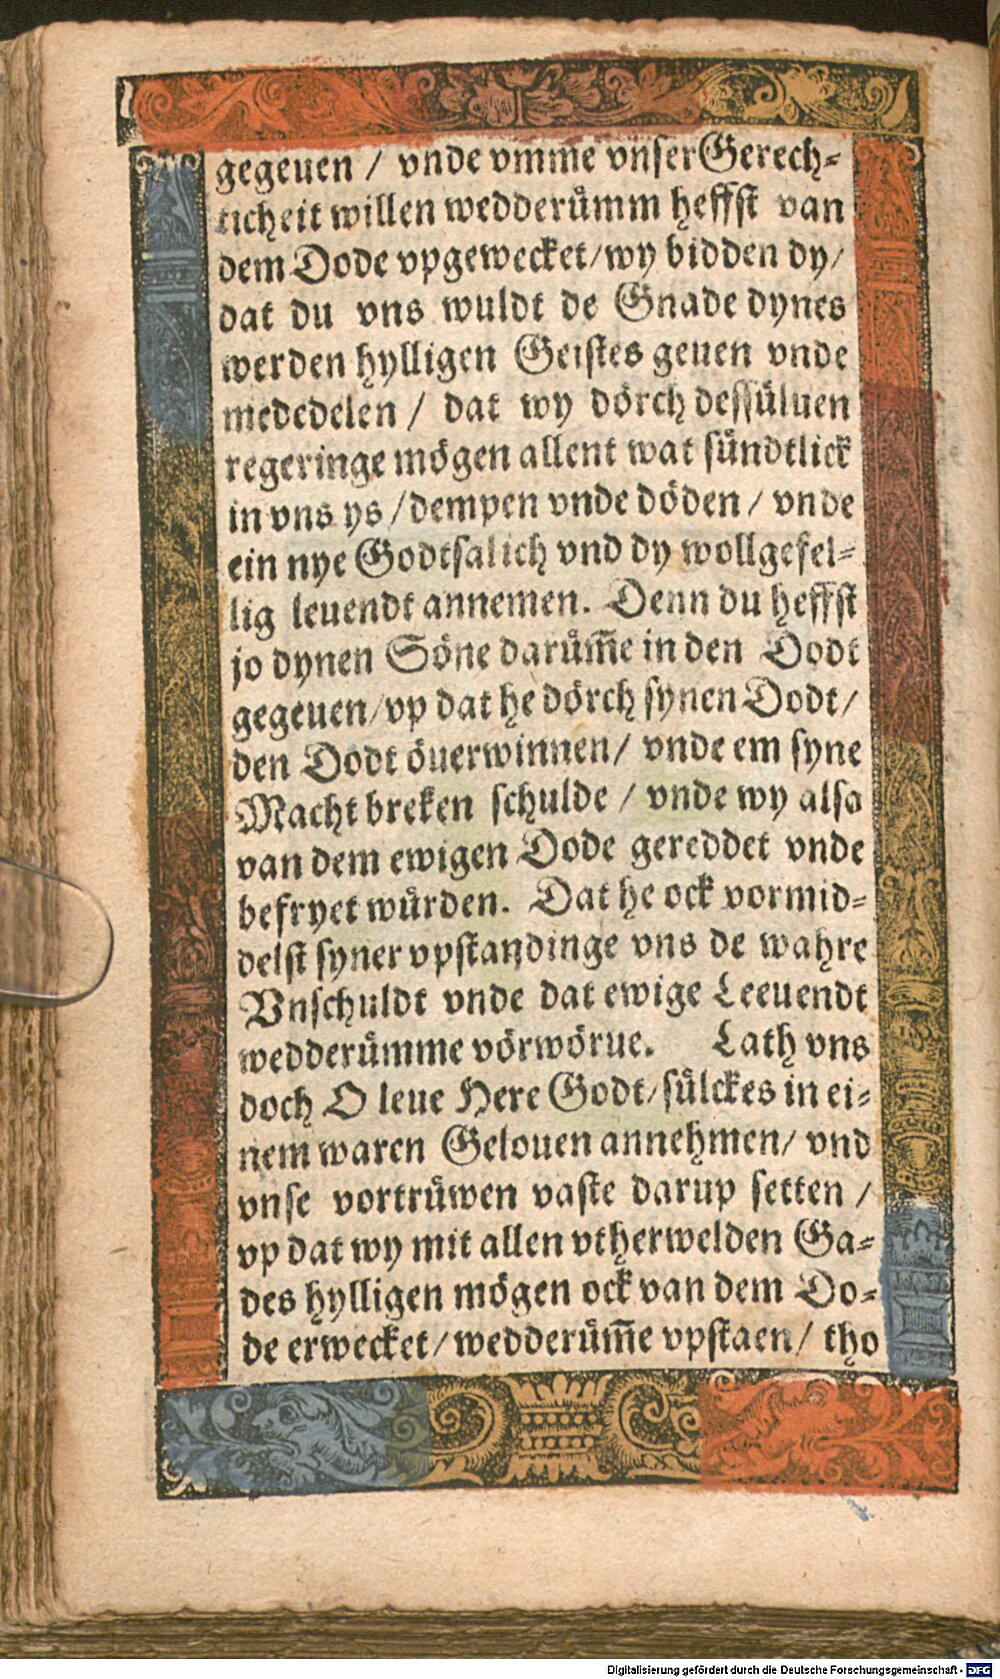 gegeuen / vnde vmme vnser Gerech⸗
ticheit willen wedderůmm heffst van
dem Dode vpgewecket / wy bidden dy /
dat du vns wuldt de Gnade dynes
werden hylligen Geistes geuen vnde
mededelen / dat wy dörch dessüluen
regeringe mögen allent wat sündtlick
in vns ys / dempen vnde döden / vnde
ein nye Godtsalich vnd dy wollgefel⸗
lig leuendt annemen. Denn du heffst
jo dynen Söne darům̃e in den Dodt
gegeuen / vp dat he dörch synen Dodt /
den Dodt öuerwinnen / vnde em syne
Macht breken schulde / vnde wy also
van dem ewigen Dode gereddet vnde
befryet würden. Dat he ock vormid⸗
delst syner vpstandinge vns de wahre
Vnschuldt vnde dat ewige Leeuendt
wedderůmme vörwörue. Lath vns
doch O leue Here Godt / sülckes in ei⸗
nem waren Gelouen annehmen / vnd
vnse vortrůwen vaste darup setten /
vp dat wy mit allen vtherwelden Ga⸗
des hylligen mögen ock van dem Do⸗
de erwecket / wedderům̃e vpstaen / tho
Digitalisierung gefördert durch die Deutsche Forschungsgemeinschaft - DFG